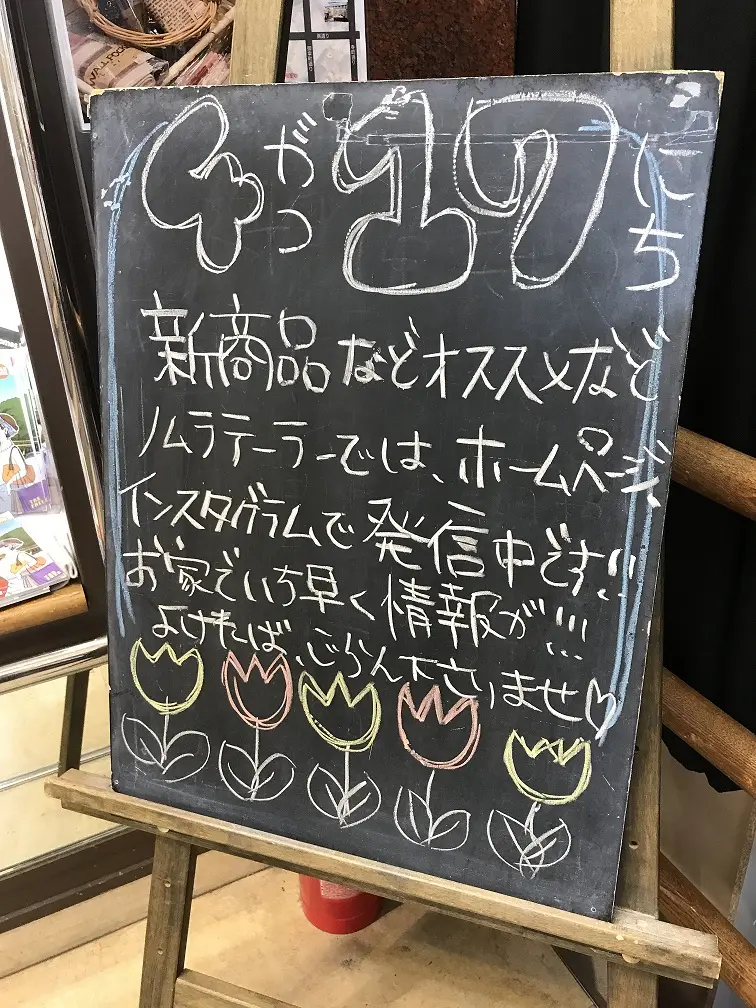 4がつ17にち
新商品などオススメなど
ノムラテーラーでは、ホームページ、
インスタグラムで発信中です!!
お家でいち早く情報が!!!
よければ、ごらん下さいませ♡